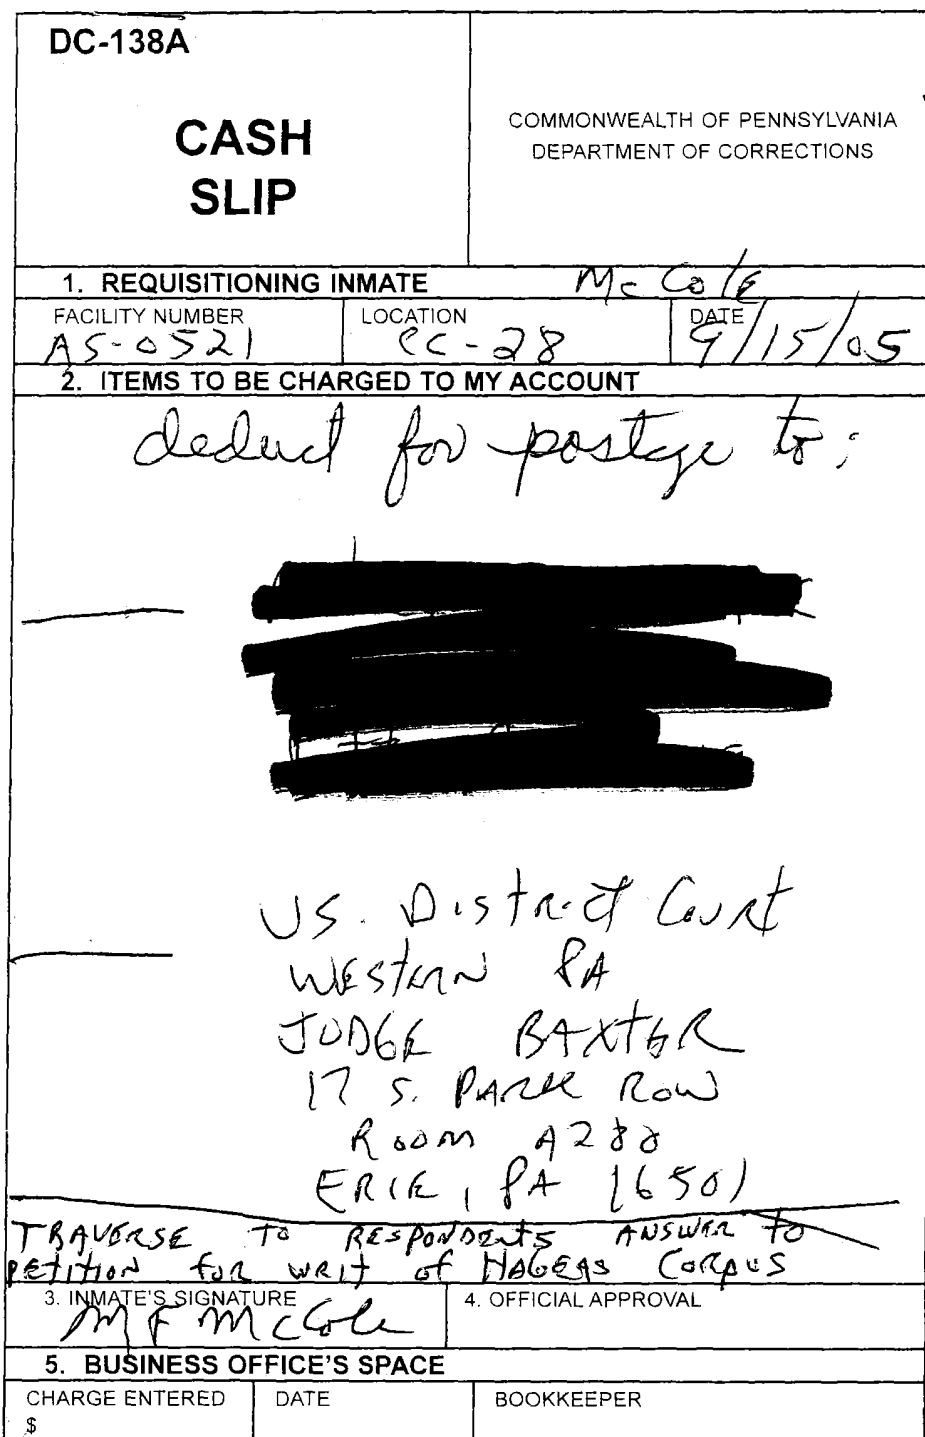 DC-138A
CASH
SLIP
COMMONWEALTH OF PENNSYLVANIA
DEPARTMENT OF CORRECTIONS
1. REQUISITIONING INMATE McCole
FACILITY NUMBER LOCATION DATE
AS-0521 CC-28 9/15/05
2. ITEMS TO BE CHARGED TO MY ACCOUNT
deduct for postage to;
US. District Court
WESTERN PA
JUDGE BAXTER
17 S. PARK ROW
ROOM A280
ERIE, PA 16501
TRAVERSE TO RESPONDENTS ANSWER TO
PETITION FOR WRIT OF HABEAS CORPUS
3. INMATE'S SIGNATURE 4. OFFICIAL APPROVAL
MF McCole
5. BUSINESS OFFICE'S SPACE
CHARGE ENTERED DATE BOOKKEEPER
$